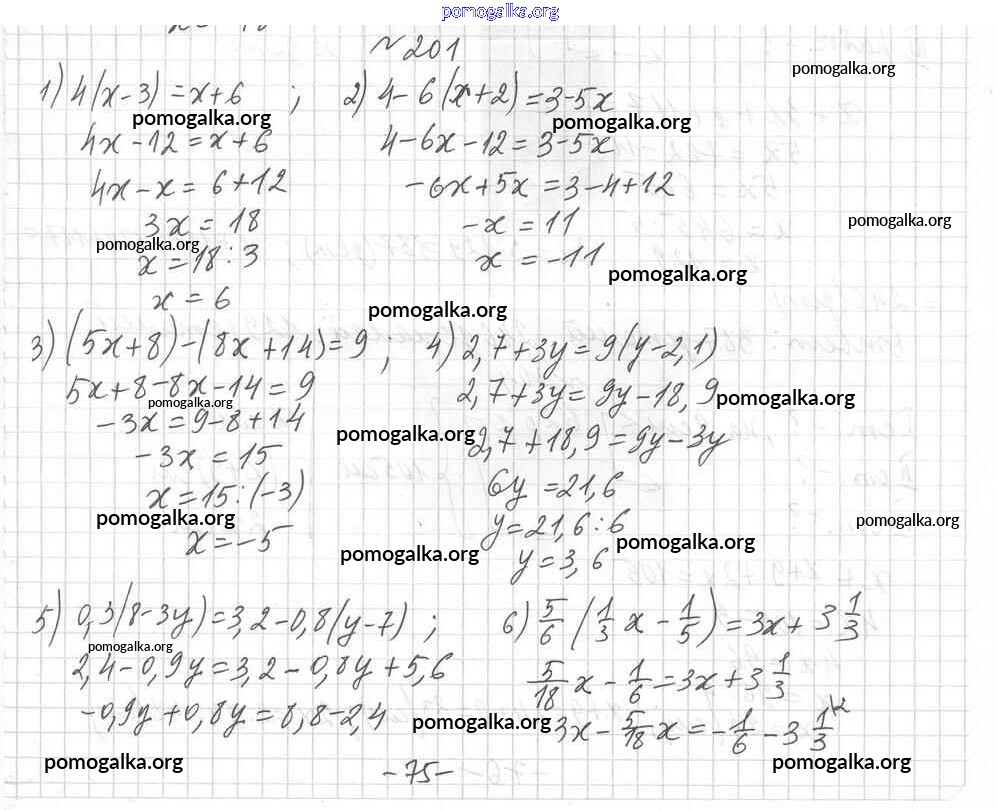 pomogalka.org
№201
pomogalka.org
1) 4(x-3)=x+6 ; 2) 4-6(x+2)=3-5x
pomogalka.org pomogalka.org
4x-12=x+6 4-6x-12=3-5x
4x-x=6+12 -6x+5x=3-4+12
3x=18 -x=11
pomogalka.org pomogalka.org
x=18:3 x=-11
pomogalka.org
x=6
pomogalka.org
3) (5x+8)-(8x+14)=9 ; 4) 2,7+3y=9(y-2,1)
5x+8-8x-14=9 2,7+3y=9y-18,9
pomogalka.org pomogalka.org
-3x=9-8+14 2,7+18,9=9y-3y
pomogalka.org
-3x=15 6y=21,6
x=15:(-3) y=21,6:6
pomogalka.org pomogalka.org
x=-5 y=3,6
pomogalka.org pomogalka.org
5) 0,3(8-3y)=3,2-0,8(y-7) ; 6) 5/6 (1/3 x - 1/5) = 3x + 3 1/3
pomogalka.org
2,4-0,9y=3,2-0,8y+5,6 5/18 x - 1/6 = 3x + 3 1/3
-0,9y+0,8y=8,8-2,4 3x - 5/18 x = - 1/6 - 3 1/3 \2
pomogalka.org
pomogalka.org pomogalka.org
-75-